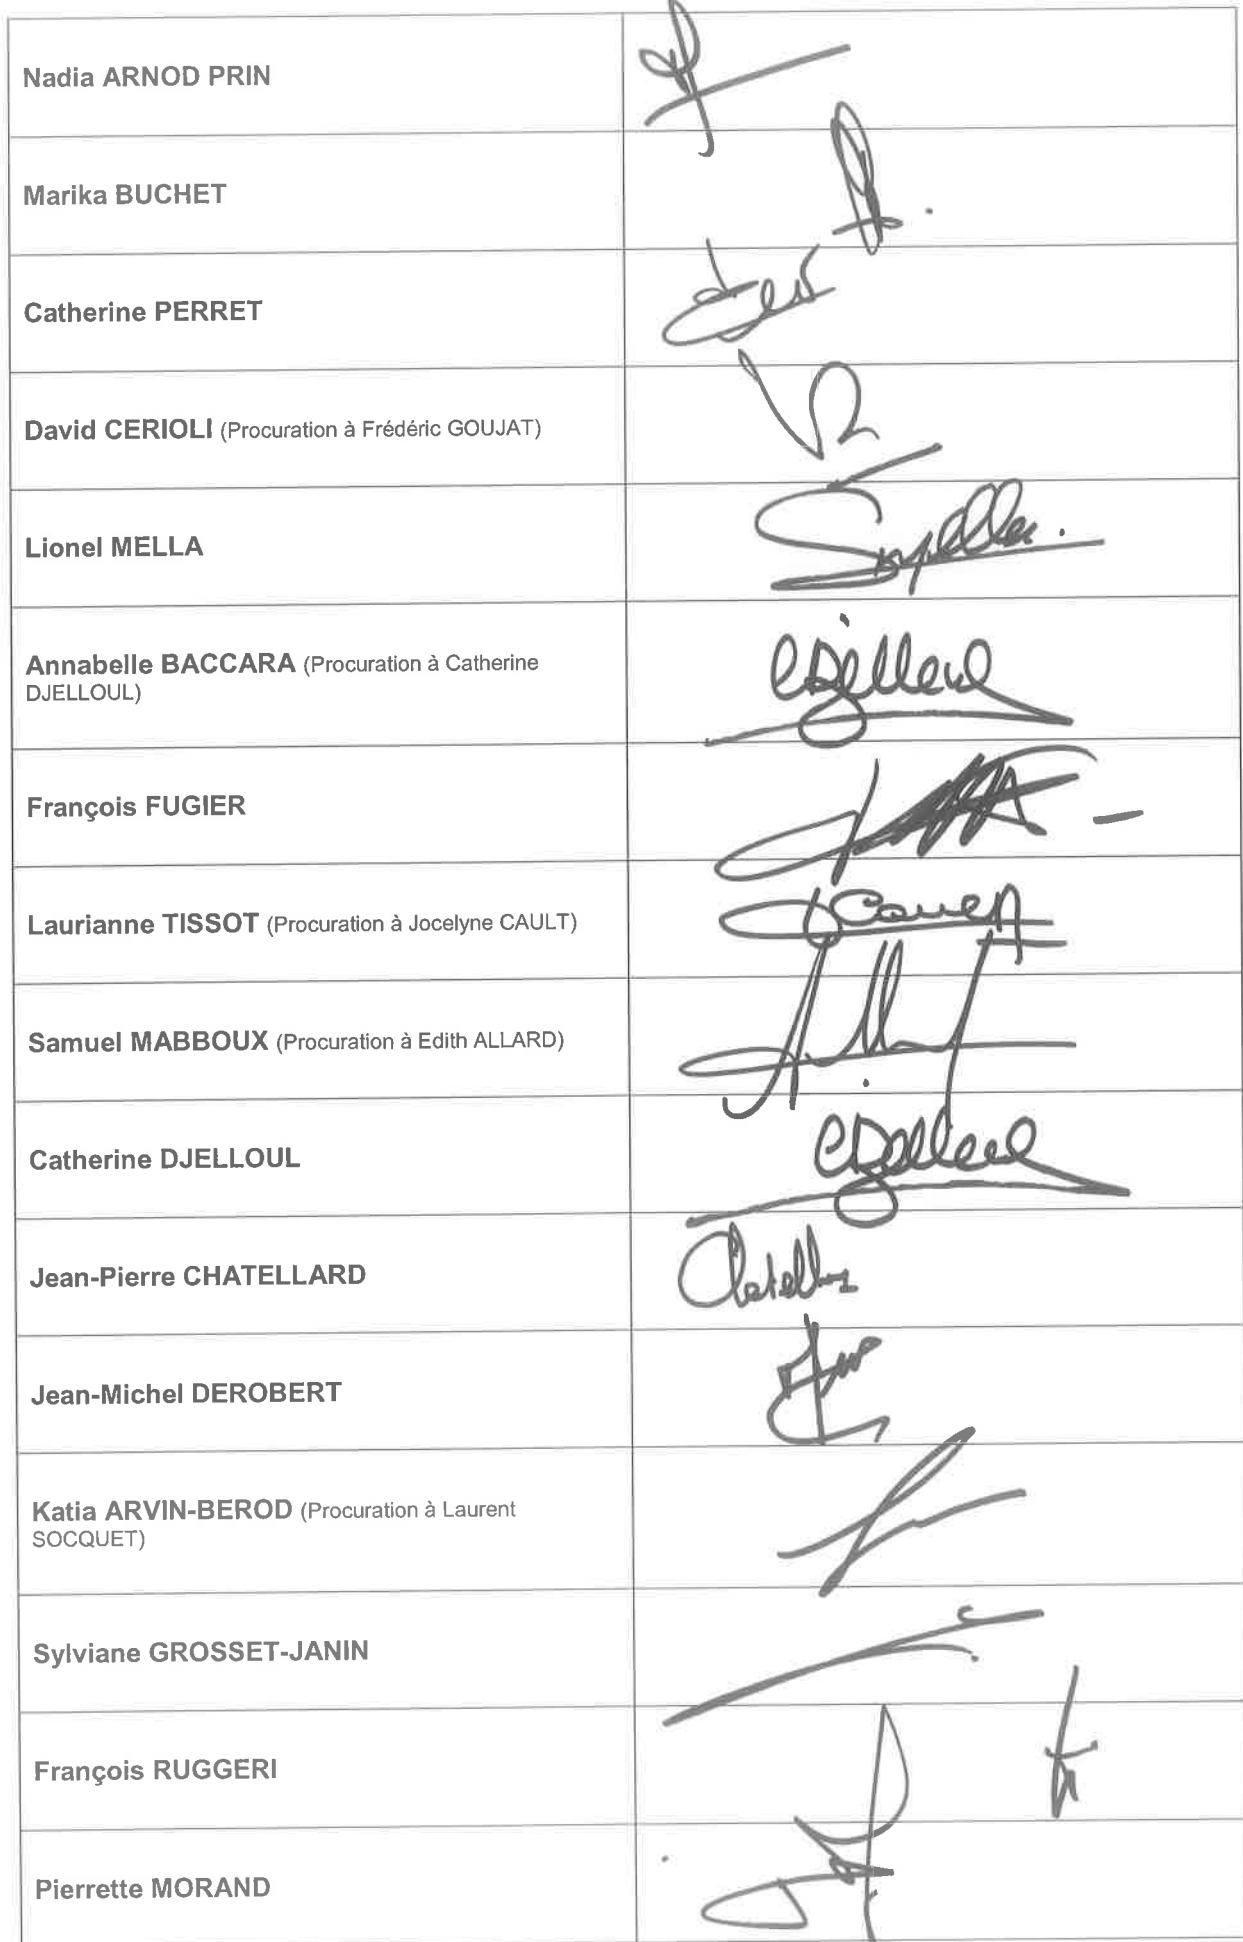 Nadia ARNOD PRIN
Marika BUCHET
Catherine PERRET
David CERIOLI (Procuration à Frédéric GOUJAT)
Lionel MELLA
Annabelle BACCARA (Procuration à Catherine
DJELLOUL)
CDjelloul
François FUGIER
Laurianne TISSOT (Procuration à Jocelyne CAULT)
Samuel MABBOUX (Procuration à Edith ALLARD)
Catherine DJELLOUL
CDjelloul
Jean-Pierre CHATELLARD
Jean-Michel DEROBERT
Katia ARVIN-BEROD (Procuration à Laurent
SOCQUET)
Sylviane GROSSET-JANIN
François RUGGERI
Pierrette MORAND